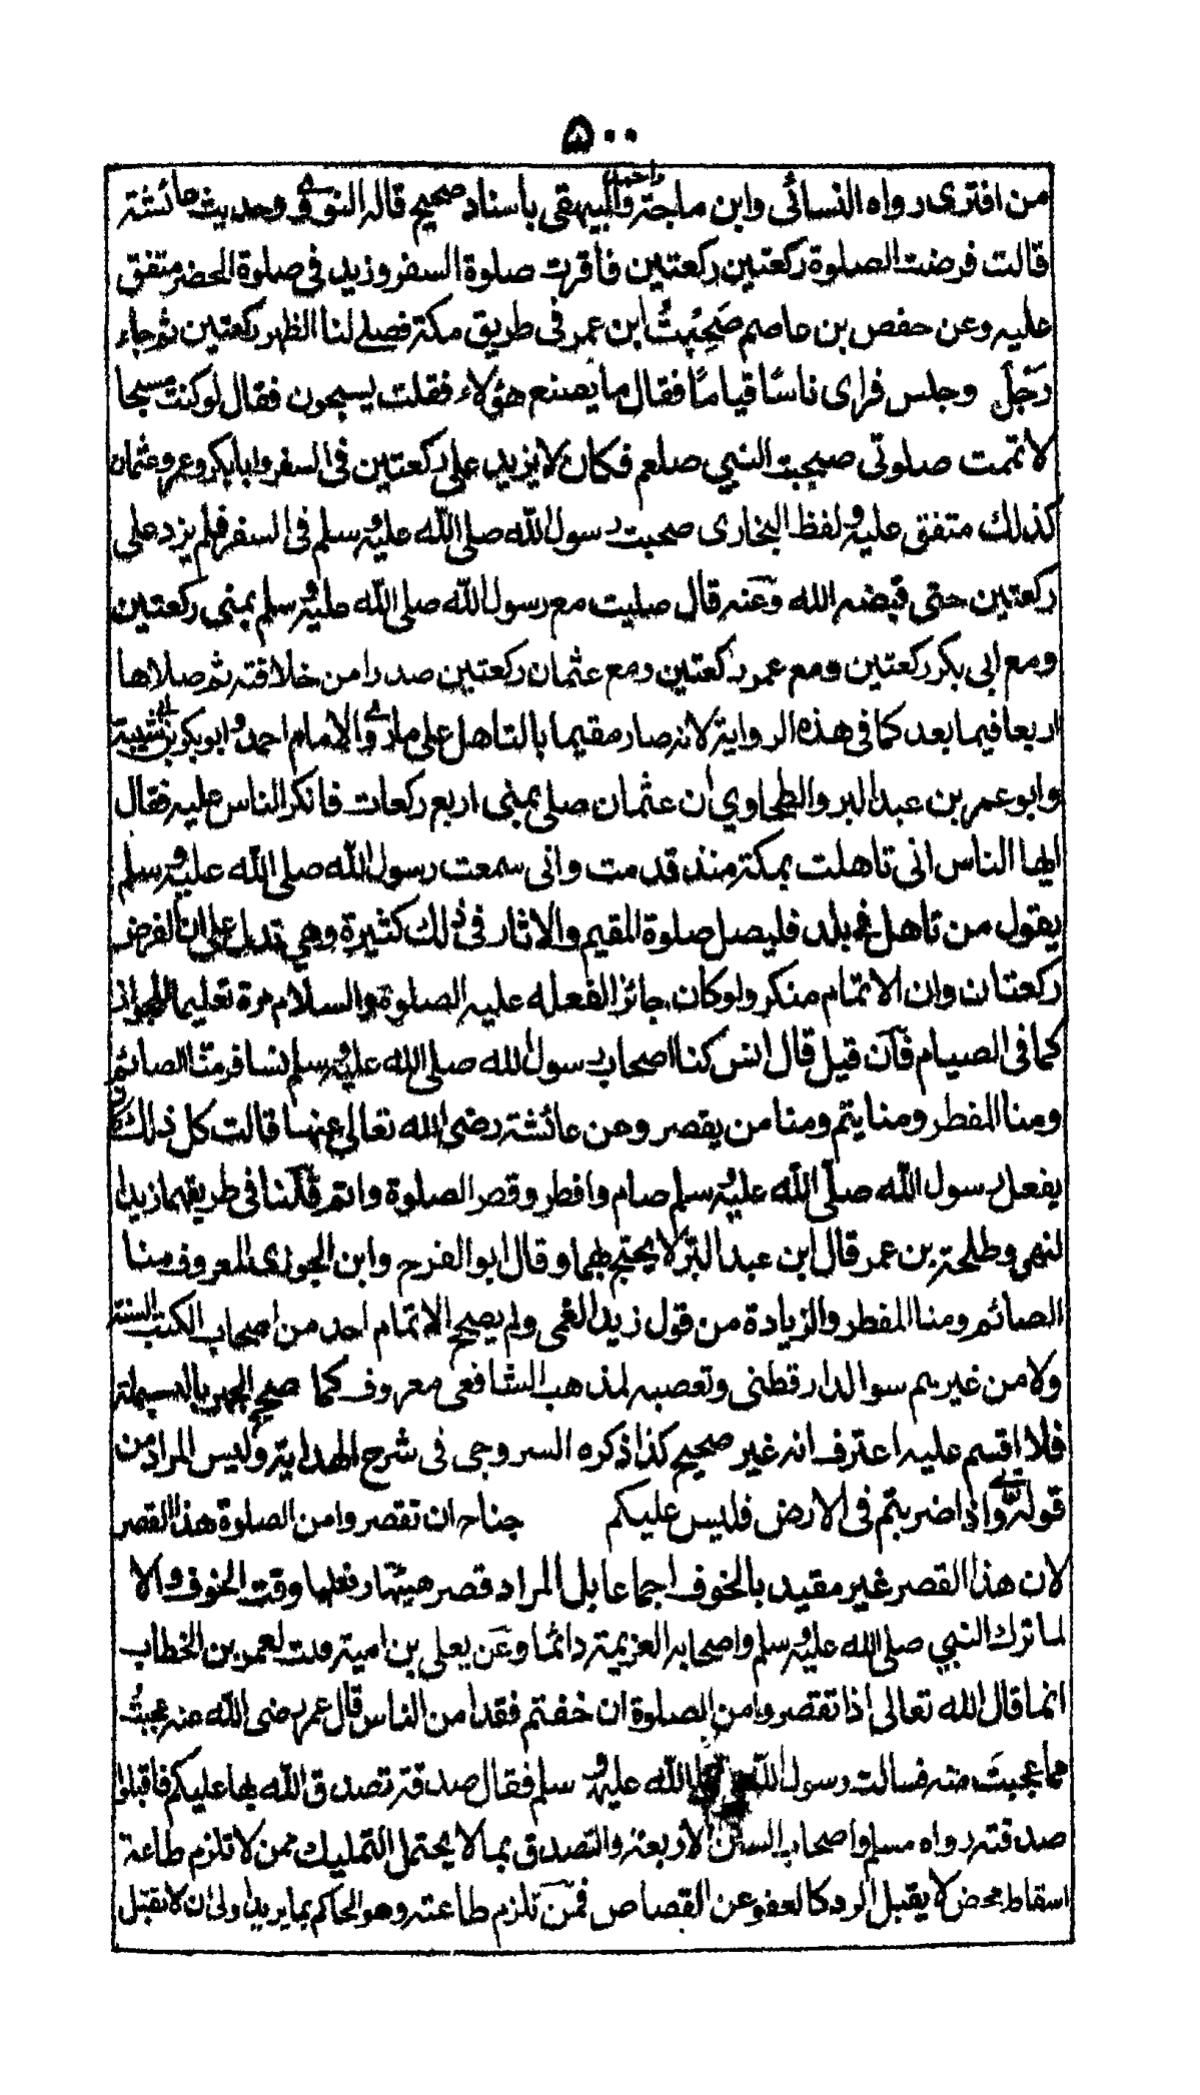 ۵۰۰
من افترى رواه النسائى وابن ماجة واحمد والبيهقى باسناد صحيح قاله النووى وحديث عائشة
قالت فرضت الصلوة ركعتين ركعتين فاقرت صلوة السفر وزيد فى صلوة الحضر متفق
عليه وعن حفص بن عاصم صَحِبْتُ ابن عمر فى طريق مكة فصلى لنا الظهر ركعتين ثم جاء
رَحْلَ وجلس فراى ناسًا قيامًا فقال ما يصنع هؤلاء فقلت يسبحون فقال لو كنت مسبحا
لاتممت صلوتى صحبت النبي صلعم فكان لا يزيد على ركعتين فى السفر وابابكر وعمر وعثمان
كذلك متفق عليه ولفظ البخارى صحبت رسول الله صلى الله عليه وسلم فى السفر فلم يزد على
ركعتين حتى قبضه الله وعنه قال صليت مع رسول الله صلى الله عليه وسلم بمنى ركعتين
ومع ابى بكر ركعتين ومع عمر ركعتين ومع عثمان ركعتين صدرا من خلافته ثم صلاها
اربعا فيما بعد كما فى هذه الرواية لانه صار مقيما بالتاهل على ما روى الامام احمد وابوبكر بن ابي شيبة
وابو عمر بن عبد البر والطحاوي أن عثمان صلى بمنى اربع ركعات فانكر الناس عليه فقال
ايها الناس انى تاهلت بمكة منذ قدمت وانى سمعت رسول الله صلى الله عليه وسلم
يقول من تاهل فى بلد فليصل صلوة المقيم والاثار فى ذلك كثيرة وهي تدل على ان الفرض
ركعتان وان الاتمام منكر ولو كان جائز الفعله عليه الصلوة والسلام مرة تعليما للجواز
كما فى الصيام فآن قيل قال انس كنا اصحاب رسول الله صلى الله عليه وسلم نسافر منا الصائم
ومنا المفطر ومنا يتم ومنا من يقصر وعن عائشة رضى الله تعالى عنها قالت كل ذلك كان
يفعل رسول الله صلى الله عليه وسلم صام وافطر وقصر الصلوة واتم قلنا فى طريقهما زيدا
لنهى وطلحة بن عمر قال ابن عبد البرّ لا يحتج بهما وقال ابو الفرح وابن الجوزى المعروف منا
الصائم ومنا المفطر والزيادة من قول زيد العمى ولم يصحح الاتمام احد من اصحاب الكتب الستة
ولا من غيرهم سوا الدارقطنى وتعصبه لمذهب الشافعى معروف كما صحح الجهر بالبسملة
فلا اقسم عليه اعترف انه غير صحيح كذا ذكره السروجى فى شرح الهداية وليس المراد من
قوله تعالى واذا ضربتم فى الارض فليس عليكم جناح ان تقصروا من الصلوة هذا القصر
لان هذا القصر غير مقيد بالخوف اجماعا بل المراد قصر هيئتها رفعلها وقت الخوف والا
لما ترك النبي صلى الله عليه وسلم واصحابه العزيمة دائما وعَن يعلى بن امية قلت لعمر بن الخطاب
انما قال الله تعالى اذا تقصروا من الصلوة ان خفتم فقد امن الناس قال عمر رضى الله عنه عجبتُ
مما عجبتَ منه فسالت رسول الله صلى الله عليه وسلم فقال صدقة تصدق الله بها عليكم فاقبلوا
صدقته رواه مسلم واصحاب السنن الاربعة والتصدق بما لا يحتمل التمليك ممن لا تلزم طاعة
اسقاط محض لا يقبل الرد كالعفو عن القصاص فمّن تلزم طاعته وهو الحاكم بما يريد اولى أن لا يقبل